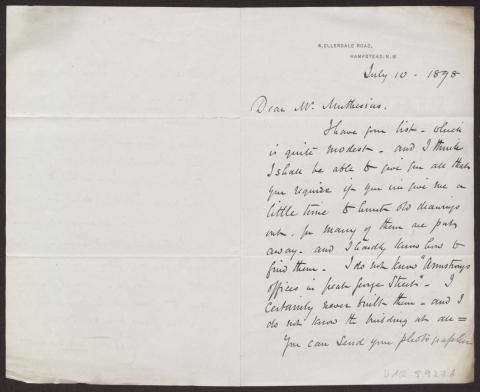 6, ELLERDALE ROAD,
HAMPSTEAD. N.W.
July 10 - 1898
Dear Mr. Muthesius.
I have your list - which
is quite modest - and I think
I shall be able to give you all that
you require if you will give me a
little time to hunt old drawings
out. for many of them are put
away - and I hardly know how to
find them - I do not know "Armstrongs
offices in great George Street" - I
certainly never built them - and I
do not know the building at all =
You can send your photographer